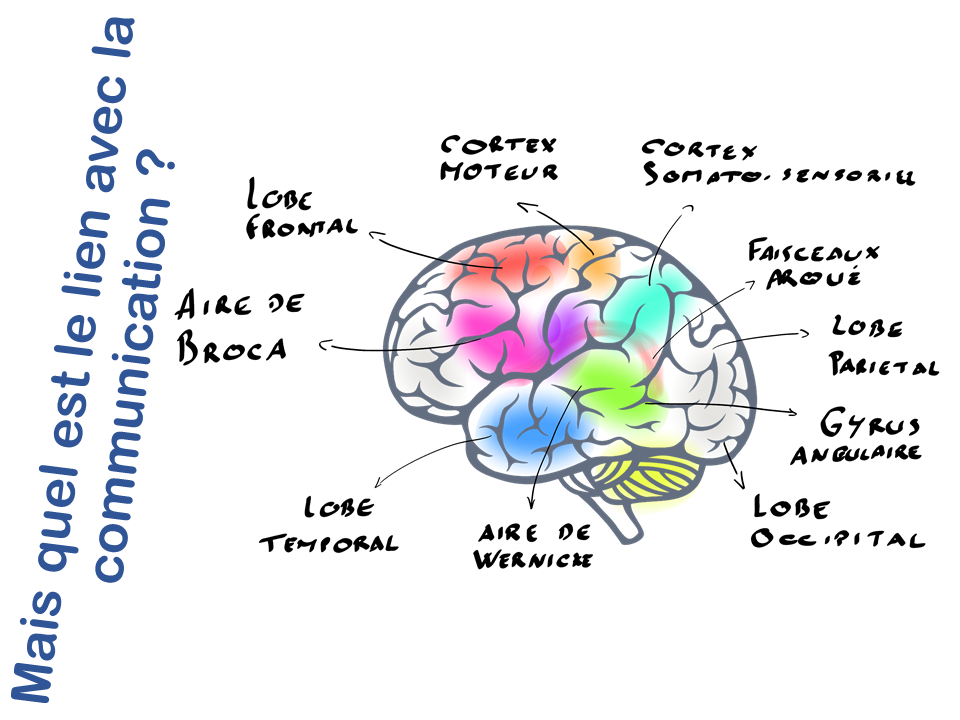 Mais quel est le lien avec la
communication ?
CORTEX
MOTEUR
CORTEX
SOMATO-SENSORIEL
LOBE
FRONTAL
FAISCEAUX
ARQUÉ
AIRE DE
BROCA
LOBE
PARIETAL
GYRUS
ANGULAIRE
LOBE
TEMPORAL
AIRE DE
WERNICKE
LOBE
OCCIPITAL